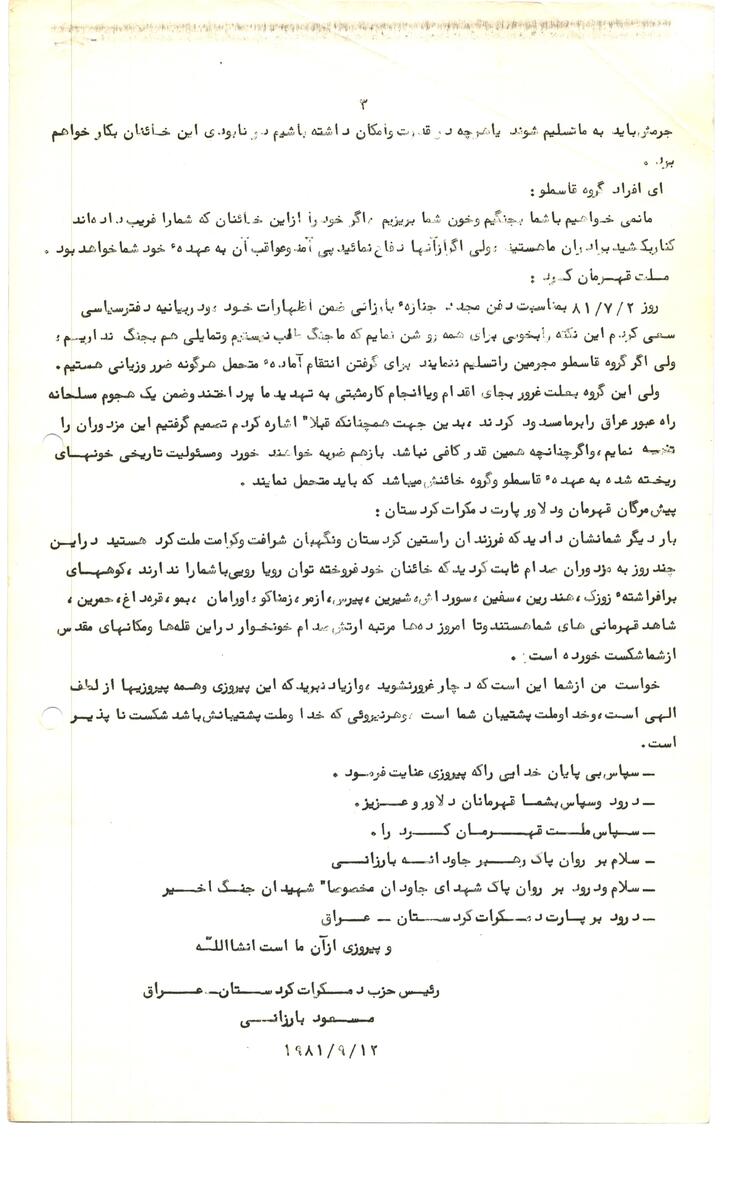 ۳
جرمش باید به ماتسلیم شوند یاهرچه در قدرت وامکان داشته باشیم در نابودی این خائنان بکار خواهم
برد .
ای افراد گروه قاسملو :
مانمی خواهیم باشما بجنگیم وخون شما بریزیم ،اگر خود را ازاین خائنان که شمارا فریب داده‌اند
کناربکشید برادران ماهستید ،ولی اگرازآنها دفاع نمائید پی آمد وعواقب آن به عهدهٔ خود شماخواهد بود .
ملت قهرمان کرد :
روز ۸۱/۷/۲ بمناسبت دفن مجدد جنازهٔ بارزانی ضمن اظهارات خود ،ودربیانیه دفترسیاسی
سعی کردم این نکته رابخوبی برای همه روشن نمایم که ماجنگ طلب نیستیم وتمایلی هم بجنگ نداریم ؛
ولی اگر گروه قاسملو مجرمین راتسلیم ننمایند برای گرفتن انتقام آمادهٔ متحمل هرگونه ضرر وزیانی هستیم .
ولی این گروه بعلت غرور بجای اقدام ویاانجام کارمثبتی به تهدید ما پرداختند وضمن یک هجوم مسلحانه
راه عبور عراق رابرماسدود کردند ،بدین جهت همچنانکه قبلا" اشاره کردم تصمیم گرفتیم این مزدوران را
تنبیه نمایم ،واگرچنانچه همین قدر کافی نباشد بازهم ضربه خواهند خورد ومسئولیت تاریخی خونهای
ریخته شده به عهدهٔ قاسملو وگروه خائنش میباشد که باید متحمل نمایند .
پیش مرگان قهرمان ودلاور پارت دمکرات کردستان :
بار دیگر شمانشان دادید که فرزندان راستین کردستان ونگهبان شرافت وکرامت ملت کرد هستید دراین
چند روز به مزدوران صدام ثابت کردید که خائنان خود فروخته توان رویا رویی باشما را ندارند ،کوههای
برافراشتهٔ زوزک ،هندرین ،سفین ،سورداش ،شیرین ،پیرس ،ازمر ،زمناکو ،اورامان ،بمو ،قرەداغ ،حمرین ،
شاهد قهرمانی های شماهستند وتا امروز ده‌ها مرتبه ارتش صدام خونخوار دراین قله‌ها ومکانهای مقدس
ازشما شکست خورده است .
خواست من ازشما این است که دچار غرورنشوید ،وازیاد نبرید که این پیروزی وهمه پیروزیها از لطف
الهی است ،وخدا وملت پشتیبان شما است ،وهرنیروئی که خدا وملت پشتیبانش باشد شکست نا پذیر
است .
ــ سپاس بی پایان خدایی راکه پیروزی عنایت فرمود .
ــ درود وسپاس بشما قهرمانان دلاور وعزیز .
ــ سپاس ملت قهرمان کرد را .
ــ سلام بر روان پاک رهبر جاودانه بارزانی
ــ سلام ودرود بر روان پاک شهدای جاودان مخصوصا" شهیدان جنگ اخیر
ــ درود بر پارت دمکرات کردستان ــ عراق
و پیروزی ازآن ما است انشااللّه
رئیس حزب دمکرات کردستان ــ عراق
مسعود بارزانی
۱۹۸۱/۹/۱۲